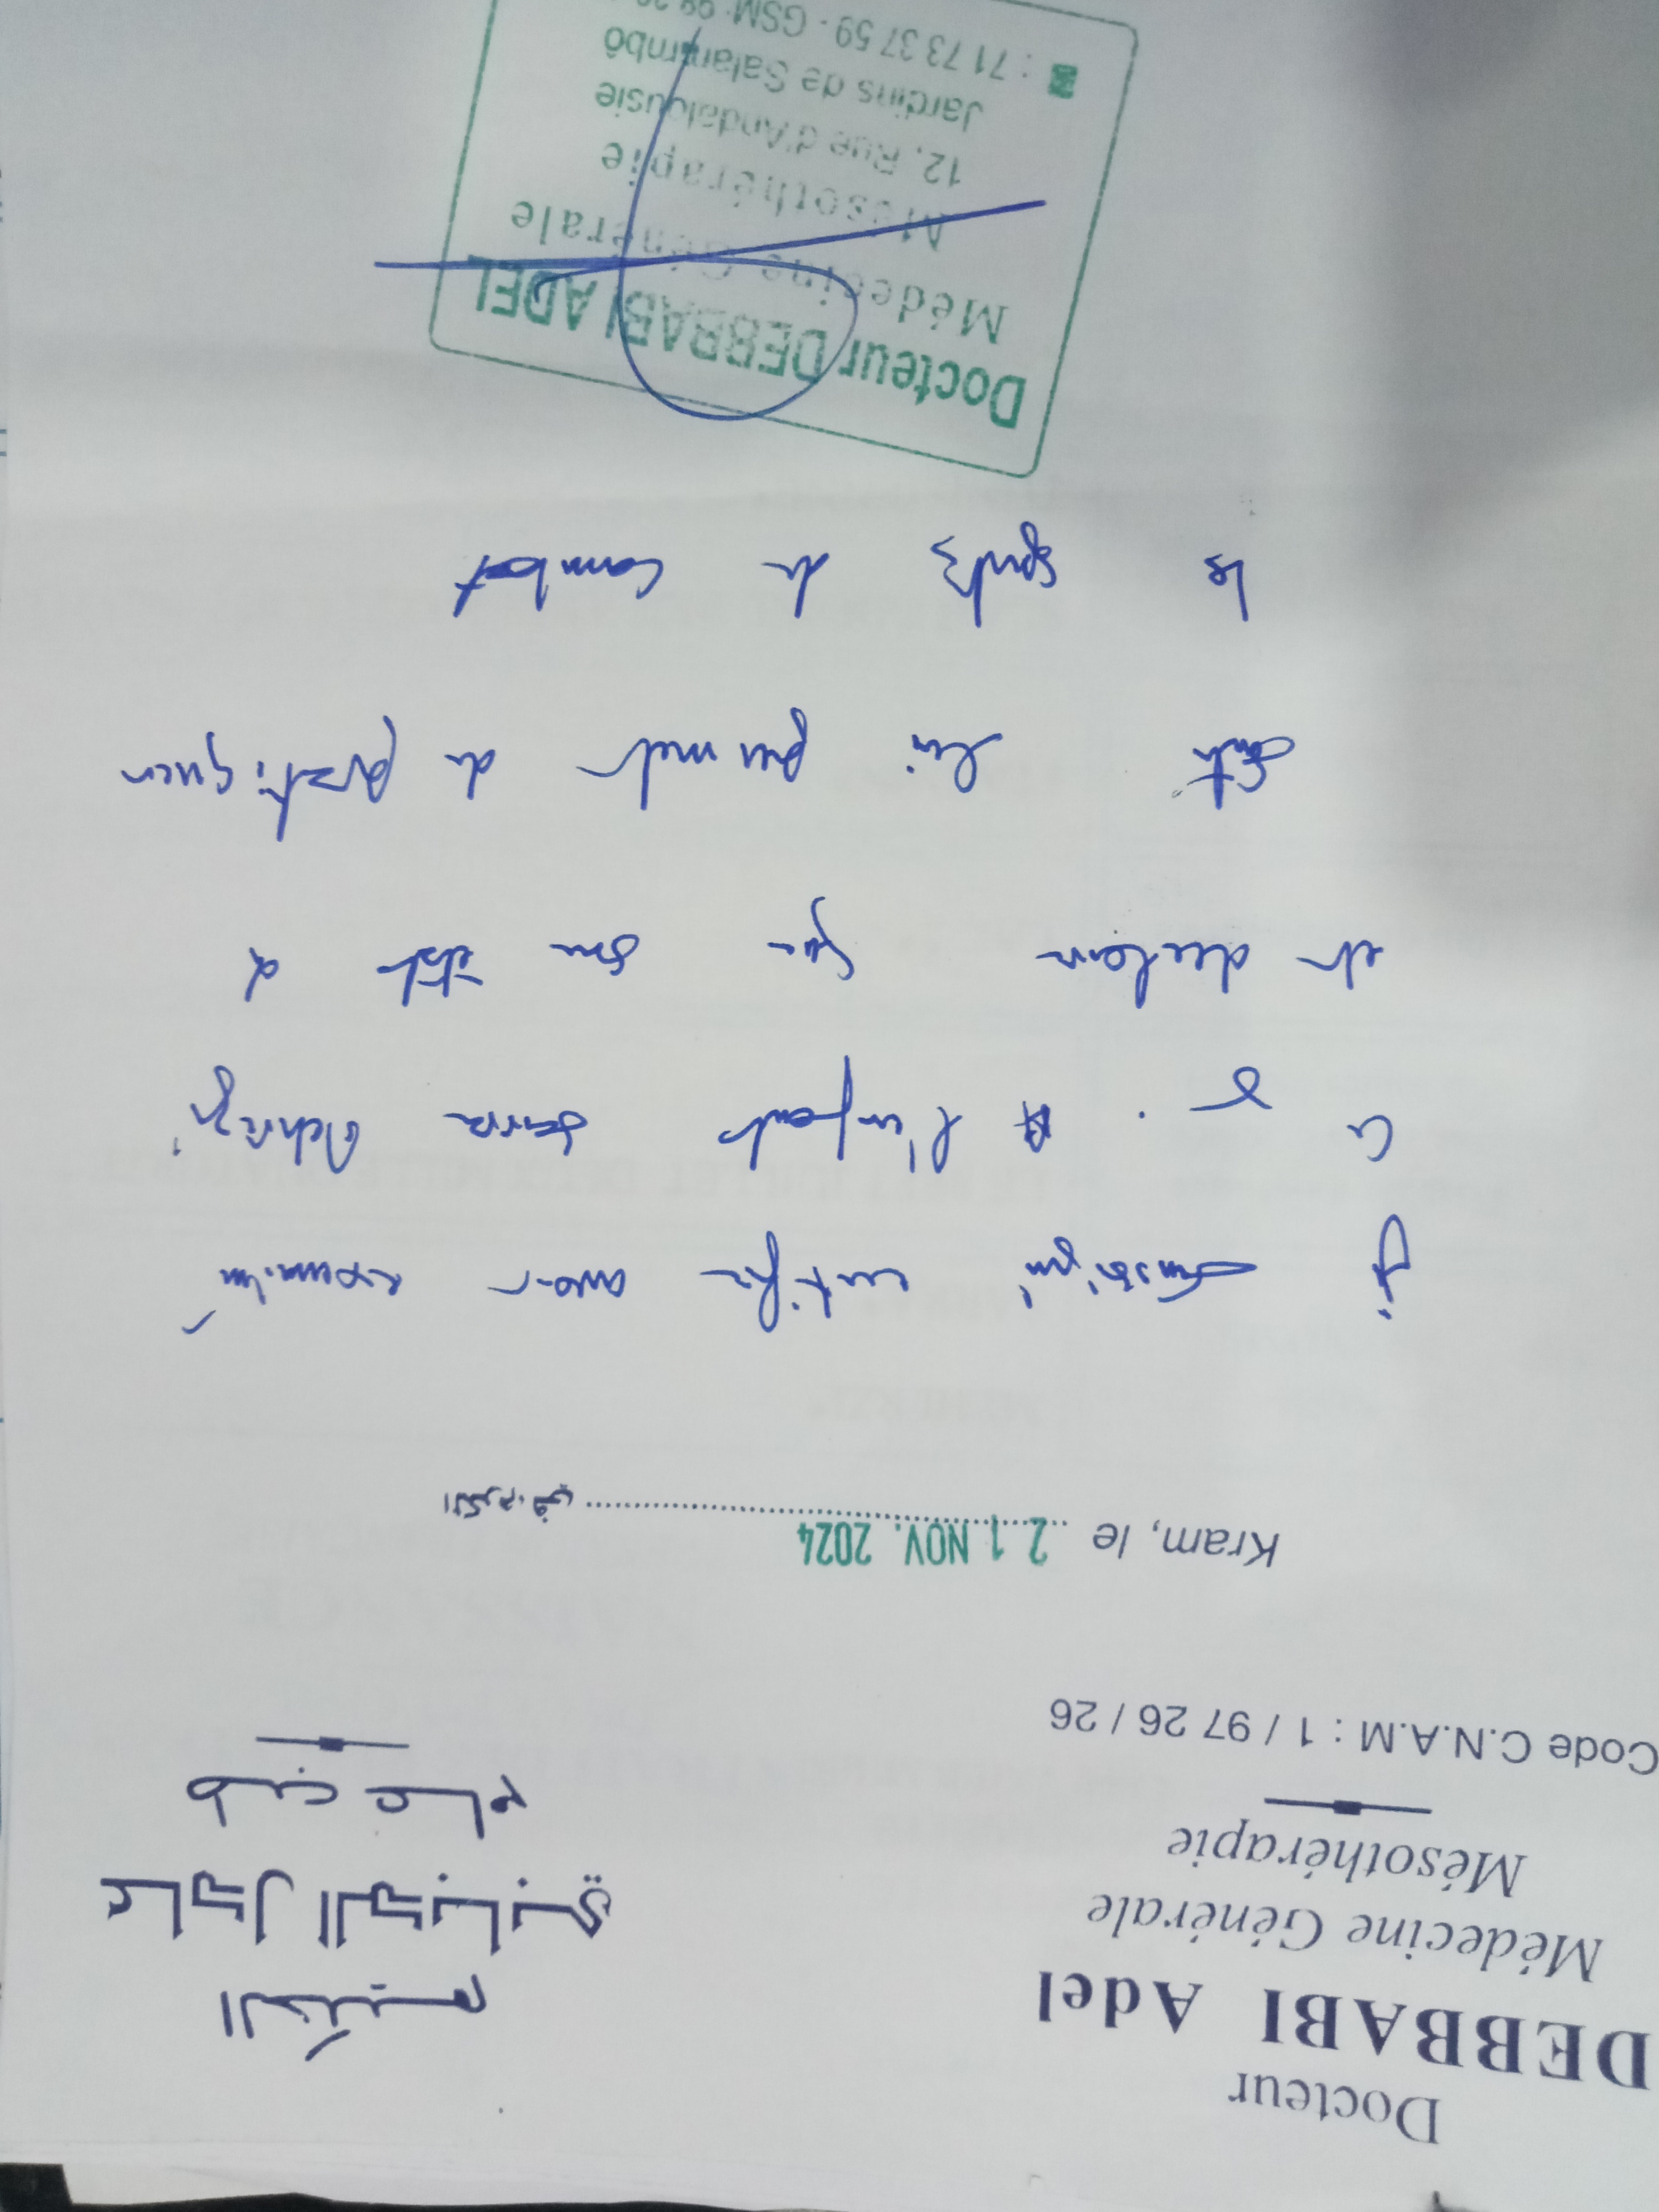 Docteur
DEBBABI Adel
Médecine Générale
Mésothérapie
Code C.N.A.M : 1 / 97 26 / 26
الحكيم
عادل الدبابي
Kram, le 21 NOV. 2024 الكرم، في
Je soussigné certifie avoir examiné
ce l'enfant
et declare que son état d
santé lui permet de pratiquer
les sports de combat
Docteur DEBBABI ADEL
Médecine Générale
Mésothérapie
12, Rue d'Andalousie
Jardins de Salammbô
: 71 73 37 59 - GSM: 98